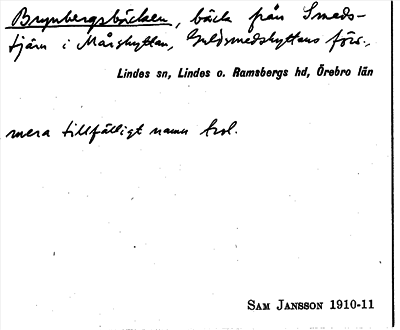 Brynbergsbäcken, bäck från Smeds-
tjärn i Mårshyttan, Guldsmedshyttans förs.,
Lindes sn, Lindes o. Ramsbergs hd, Örebro län
mera tillfälligt namn trol.
SAM JANSSON 1910-11